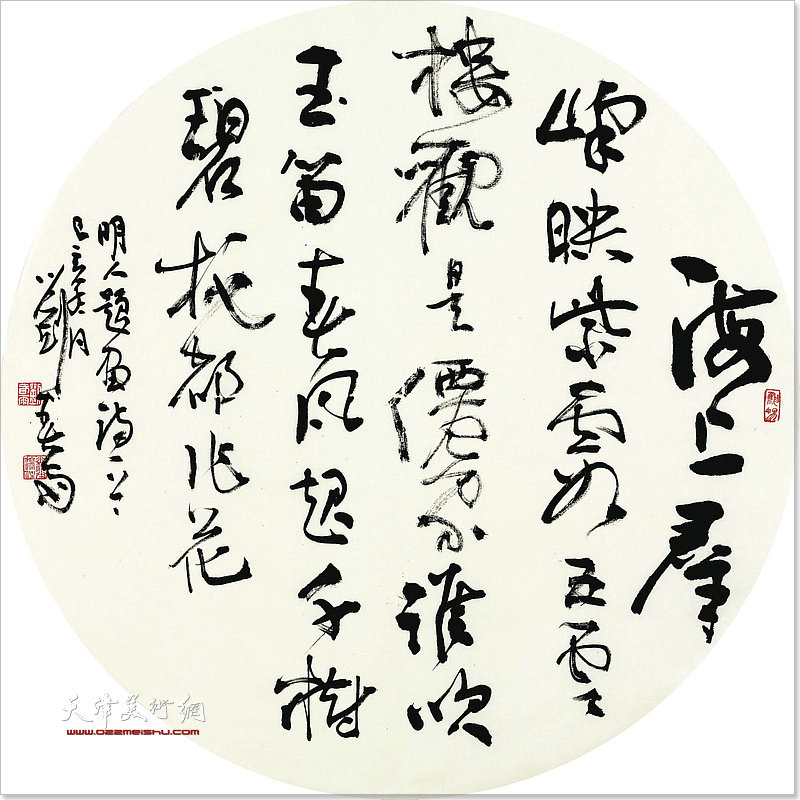 海上群
峰映紫霞五雲
樓觀是僊家誰吹
玉笛春風起千樹
碧桃都作花
明人題畫詩一首
己亥冬月
天津美術網
www.022meishu.com